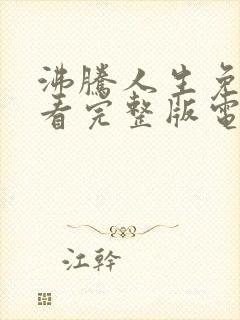 沸騰人生免
看完整版電
江幹